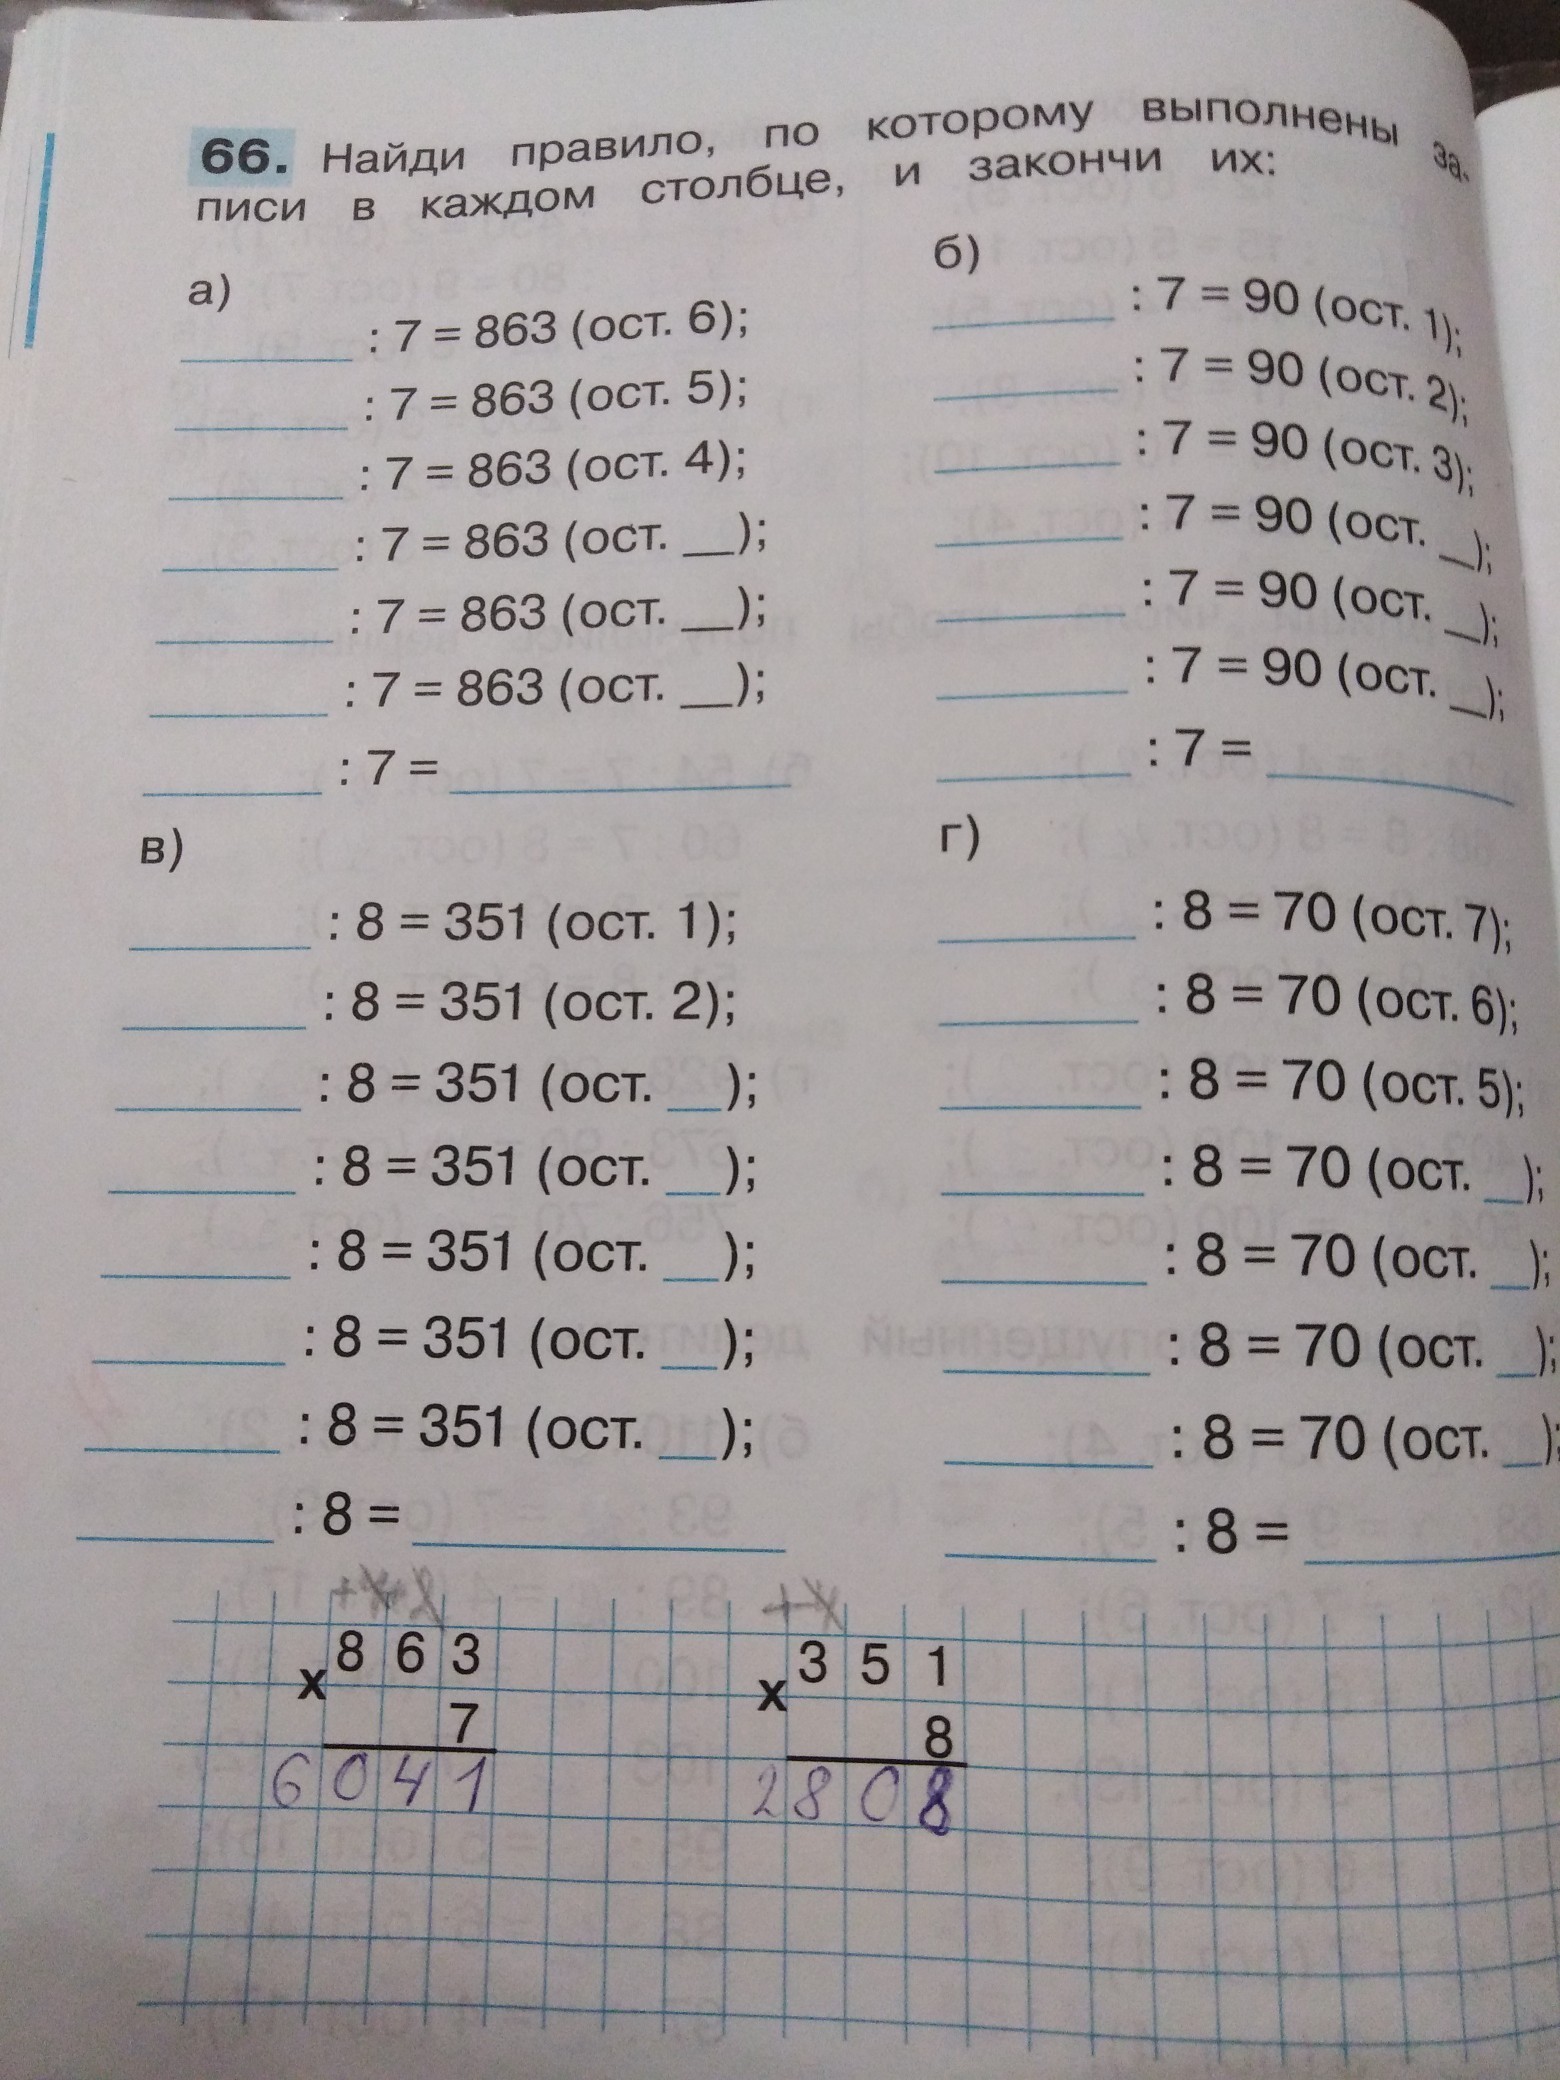 66. Найди правило, по которому выполнены за-
писи в каждом столбце, и закончи их:
а)
____ : 7 = 863 (ост. 6);
____ : 7 = 863 (ост. 5);
____ : 7 = 863 (ост. 4);
____ : 7 = 863 (ост. __);
____ : 7 = 863 (ост. __);
____ : 7 = 863 (ост. __);
____ : 7 = ________
б)
____ : 7 = 90 (ост. 1);
____ : 7 = 90 (ост. 2);
____ : 7 = 90 (ост. 3);
____ : 7 = 90 (ост. __);
____ : 7 = 90 (ост. __);
____ : 7 = 90 (ост. __);
____ : 7 = ________
в)
____ : 8 = 351 (ост. 1);
____ : 8 = 351 (ост. 2);
____ : 8 = 351 (ост. __);
____ : 8 = 351 (ост. __);
____ : 8 = 351 (ост. __);
____ : 8 = 351 (ост. __);
____ : 8 = 351 (ост. __);
____ : 8 = ________
г)
____ : 8 = 70 (ост. 7);
____ : 8 = 70 (ост. 6);
____ : 8 = 70 (ост. 5);
____ : 8 = 70 (ост. __);
____ : 8 = 70 (ост. __);
____ : 8 = 70 (ост. __);
____ : 8 = 70 (ост. __);
____ : 8 = ________
8 6 3
x
7
6 0 4 1
3 5 1
x
8
2 8 0 8